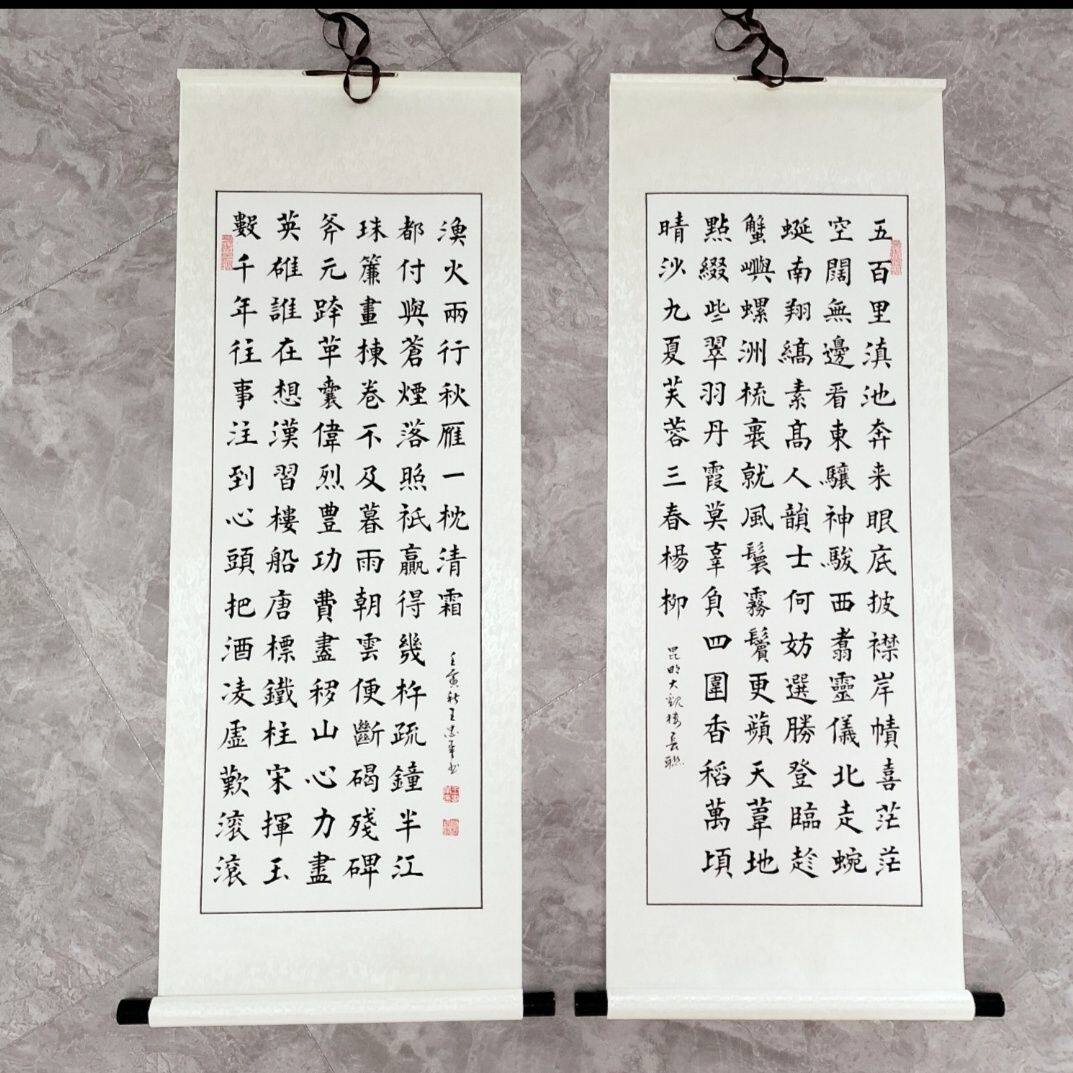 五百里滇池奔来眼底披襟岸幘喜茫茫
空闊無邊看東驤神駿西翥靈儀北走蜿
蜒南翔縞素高人韻士何妨選勝登臨趁
蟹嶼螺洲梳裹就風鬟霧鬢更蘋天葦地
點綴些翠羽丹霞莫辜負四圍香稻萬頃
晴沙九夏芙蓉三春楊柳
昆明大觀樓長聯
數千年往事注到心頭把酒凌虛歎滾滾
英雄誰在想漢習樓船唐標鐵柱宋揮玉
斧元跨革囊偉烈豊功費盡移山心力盡
珠簾畫棟卷不及暮雨朝雲便斷碣殘碑
都付與蒼煙落照祇贏得幾杵疏鐘半江
漁火兩行秋雁一枕清霜
壬寅秋王